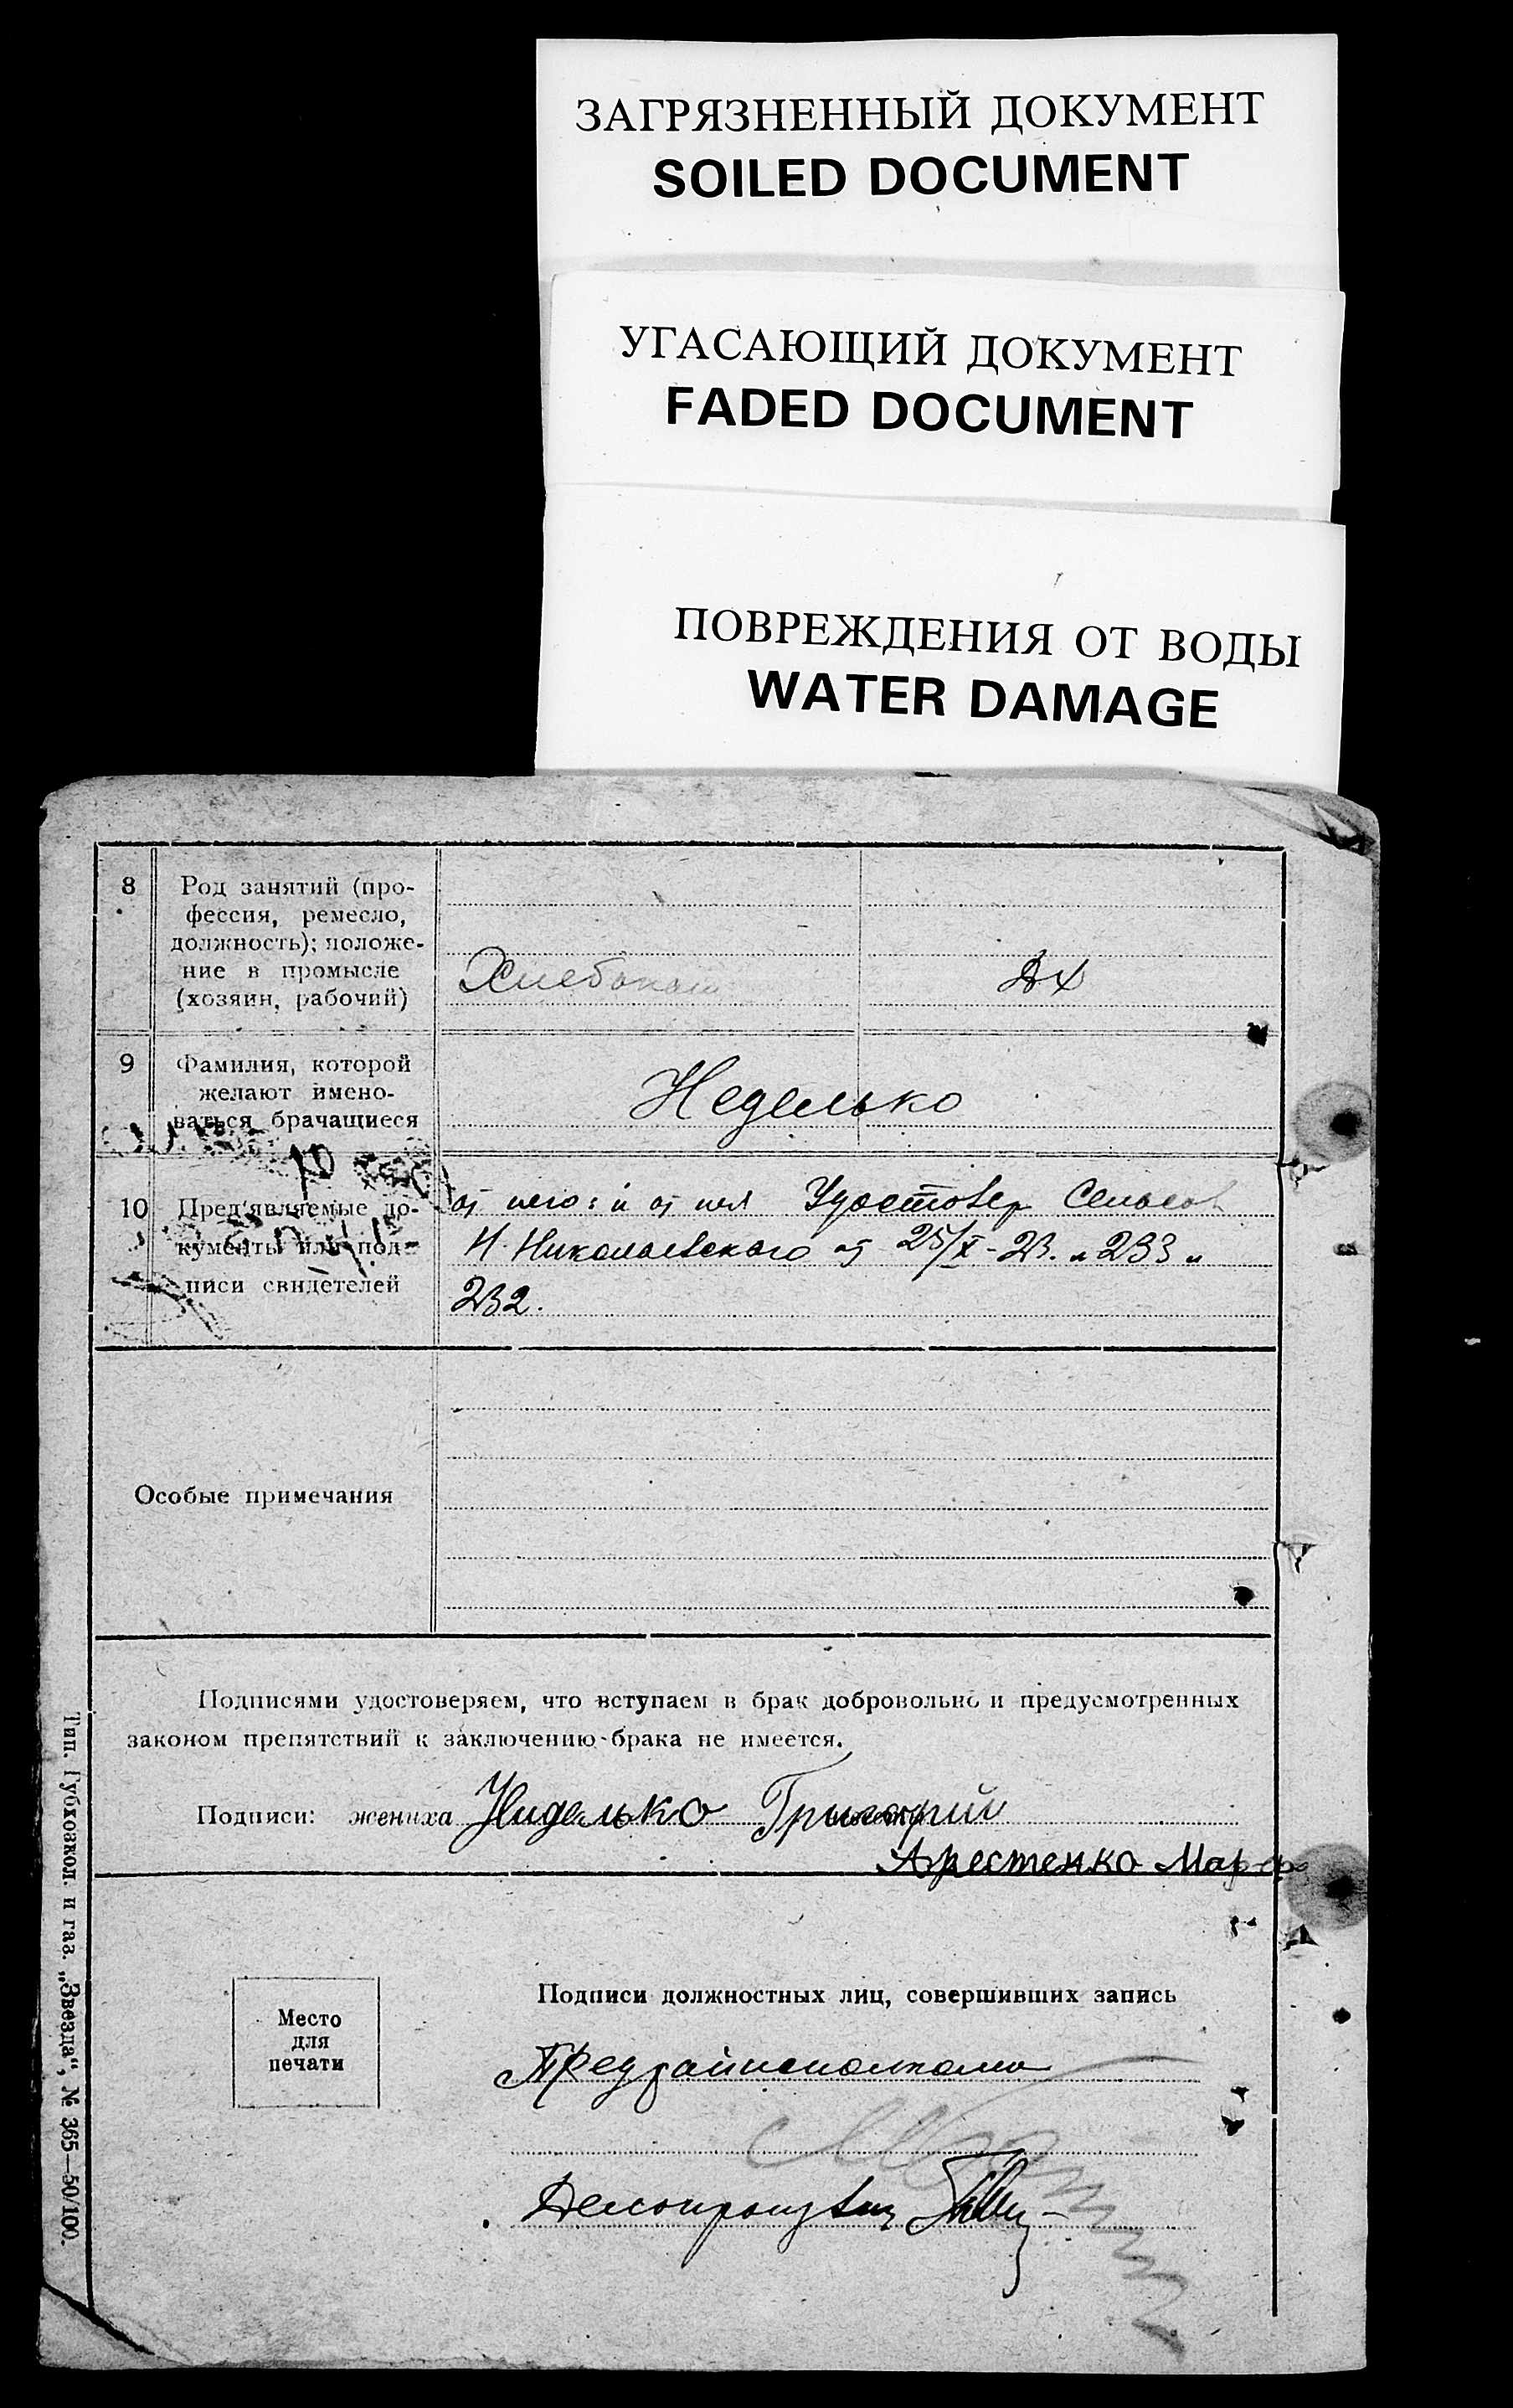 ЗАГРЯЗНЕННЫЙ ДОКУМЕНТ
SOILED DOCUMENT
УГАСАЮЩИЙ ДОКУМЕНТ
FADED DOCUMENT
ПОВРЕЖДЕНИЯ ОТ ВОДЫ
WATER DAMAGE
8
Род занятий (про-
фессия, ремесло,
должность); положе-
ние в промысле
(хозяин, рабочий)
Хлебопаш
ДХ
9
Фамилия, которой
желают имено-
ваться брачащиеся
Неделько
10
Пред'являемые до-
кументы или под-
писи свидетелей
от него: и от нея Удостовер Сельсов
Н. Николаевскаго от 25/X-23. " 233 и
232.
Особые примечания
Подписями удостоверяем, что вступаем в брак добровольно и предусмотренных
законом препятствий к заключению брака не имеется.
Подписи: жениха Ниделько Григорий
Арестенко Марфа
Место
для
печати
Подписи должностных лиц, совершивших запись
Предрайисполкома
Делопроизв
Тип. Губхозкол. и газ. „Звезда“, № 365—50/100.